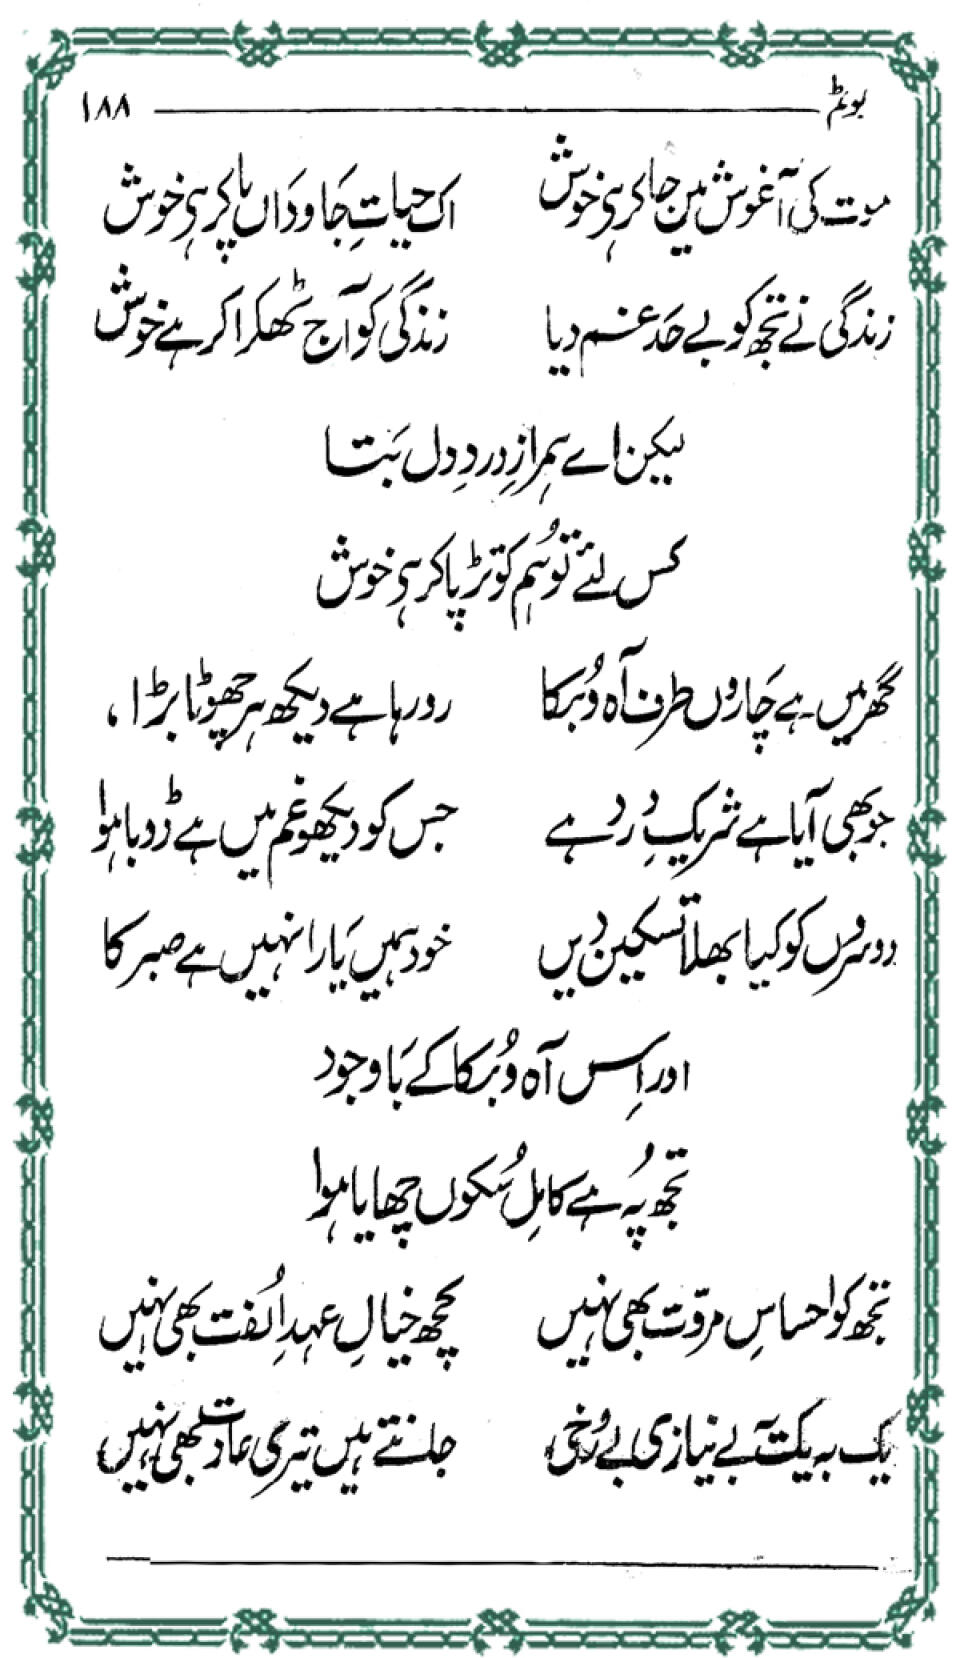 بوئم ۱۸۸
موت کی آغوش میں جا کر ہی خوش اک حیاتِ جَاودَاں پا کر ہی خوش
زندگی نے تجھ کو بے حَد غم دیا زندگی کو آج ٹھکرا کر ہے خوش
لیکن اے ہمرازِ دردِ دل بَتا
کس لئے تو ہم کو تڑپا کر ہی خوش
گھر میں ہے چَاروں طرف آہ و بُکا رو رہا ہے دیکھ ہر چھوٹا بڑا ،
جو بھی آیا ہے شریکِ درد ہے جس کو دیکھو غم میں ہے ڈوبا ہوا
دوسروں کو کیا بھلا تسکین دیں خود ہمیں یَارا نہیں ہے صبر کا
اور اِس آہ و بُکا کے بَاوجود
تجھ پُہ ہے کامِل سُکوں چھایا ہوا
تجھ کو احساسِ مروّت بھی نہیں کچھ خیالِ عہدِ اُلفت بھی نہیں
یک بہ یکت بے نیازی بے رُخی جانتے ہیں تیری عادت بھی نہیں